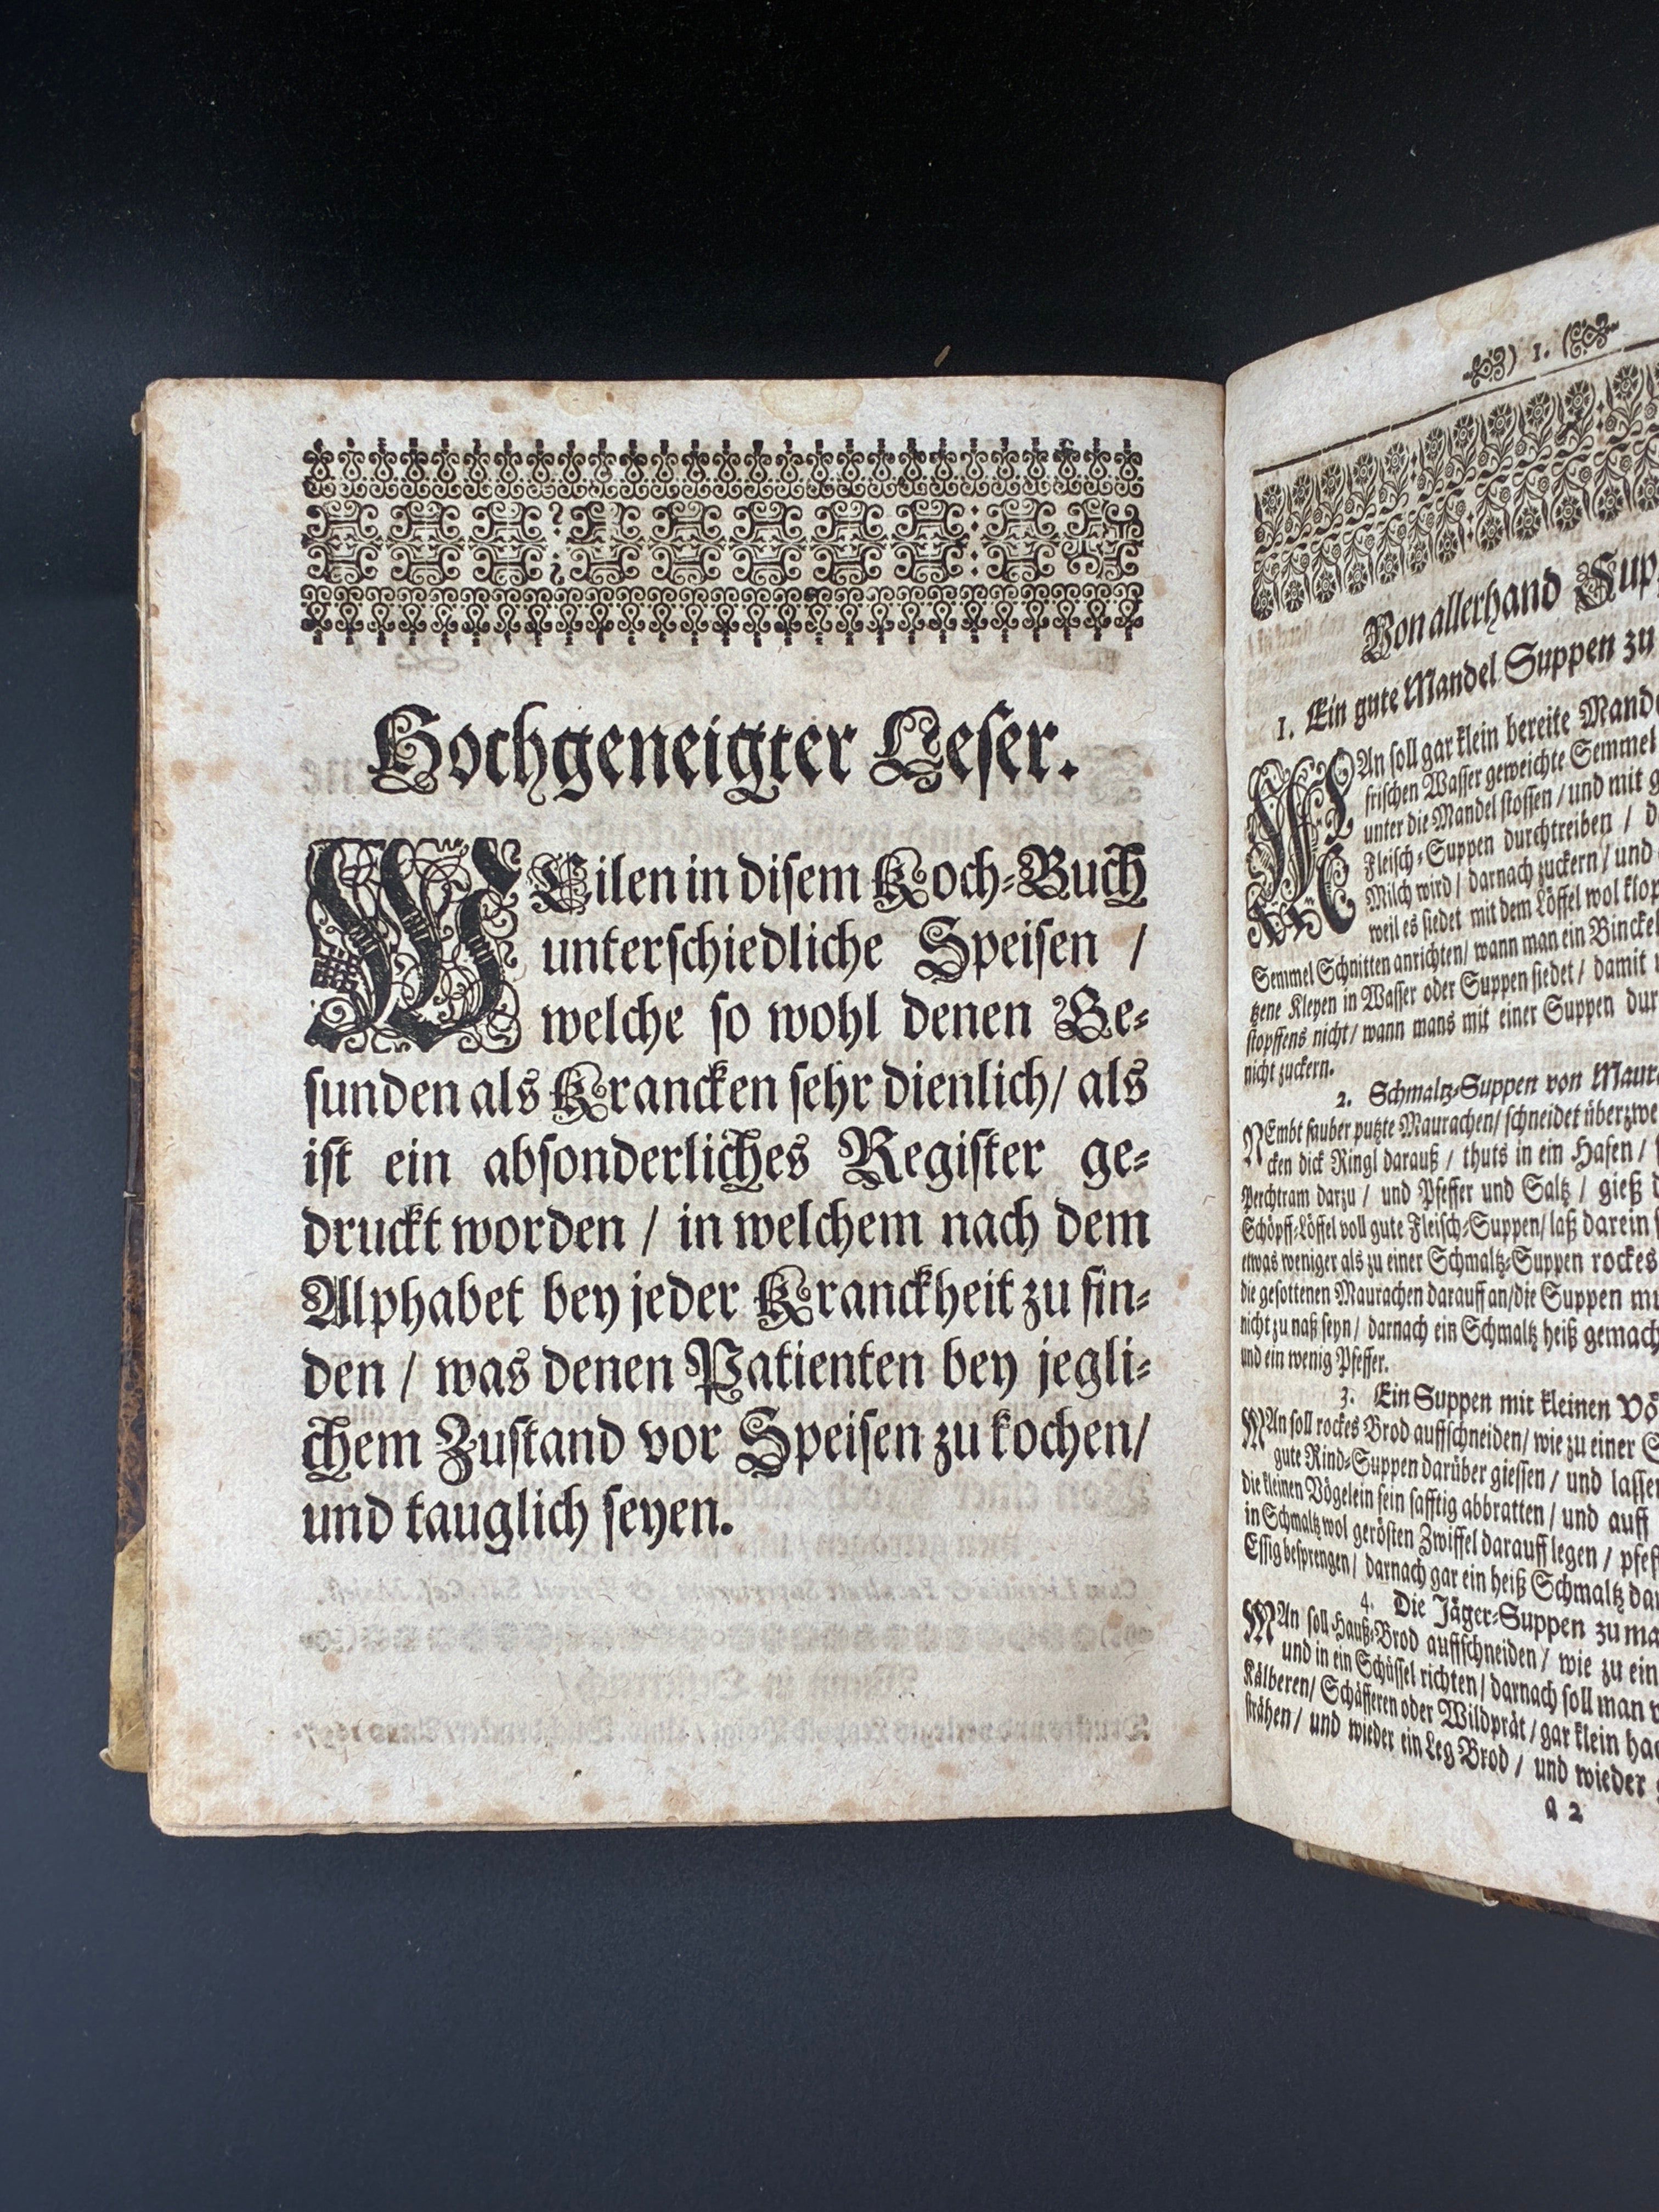 Hochgeneigter Leser.
WEilen in disem Koch-Buch
unterschiedliche Speisen /
welche so wohl denen Ge-
sunden als Krancken sehr dienlich / als
ist ein absonderliches Register ge-
druckt worden / in welchem nach dem
Alphabet bey jeder Kranckheit zu fin-
den / was denen Patienten bey jegli-
chem Zustand vor Speisen zu kochen /
und tauglich seyen.
) 1. (
Von allerhand Sup
1. Ein gute Mandel Suppen zu
MAn soll gar klein bereite Mand
frischen Wasser geweichte Semmel
unter die Mandel stossen / und mit g
Fleisch-Suppen durchtreiben / d
Milch wird / darnach zuckern / und
weil es siedet mit dem Löffel wol klop
Semmel Schnitten anrichten / wann man ein Binckel
tzene Kleyen in Wasser oder Suppen siedet / damit
stopffens nicht / wann mans mit einer Suppen dur
nicht zuckern.
2. Schmaltz-Suppen von Maur
NEmbt sauber putzte Maurachen / schneidet überzwe
cken dick Ringl darauß / thuts in ein Hafen /
Perchtram darzu / und Pfeffer und Saltz / gieß d
Schöpff-Löffel voll gute Fleisch-Suppen / laß darein
etwas weniger als zu einer Schmaltz-Suppen rockes
die gesottenen Maurachen darauff an / die Suppen mu
nicht zu naß seyn / darnach ein Schmaltz heiß gemach
und ein wenig Pfeffer.
3. Ein Suppen mit kleinen Vö
MAn soll rockes Brod auffschneiden / wie zu einer S
gute Rind-Suppen darüber giessen / und lassen
die kleinen Vögelein fein safftig abbratten / und auff
in Schmaltz wol gerösten Zwiffel darauff legen / pfef
Essig besprengen / darnach gar ein heiß Schmaltz dar
4. Die Jäger-Suppen zu ma
MAn soll Hauß-Brod auffschneiden / wie zu ein
und in ein Schüssel richten / darnach soll man
Kälberen / Schäfferen oder Wildprät / gar klein hac
strähen / und wieder ein Leg Brod / und wieder
A 2